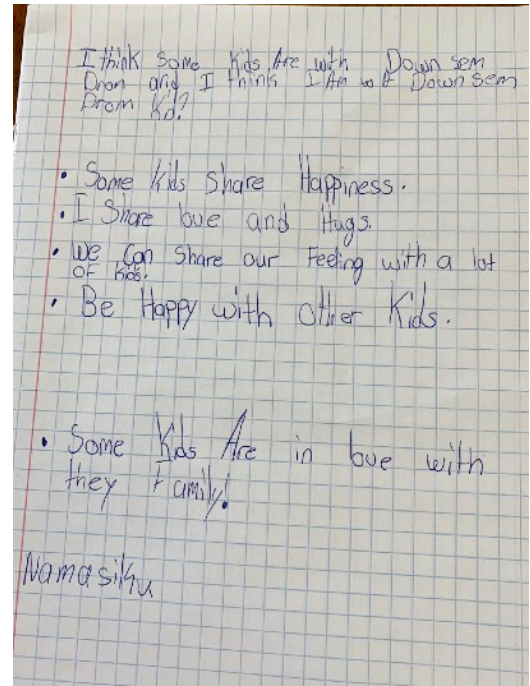 I think Some Kids Are with Down Sem
Drom and I think I Am a Down Sem
Drom Kid?
• Some Kids Share Happiness.
• I Share love and Hugs.
• We Can Share our Feeling with a lot
OF Kids.
• Be Happy with other Kids.
• Some Kids Are in love with
they Family!